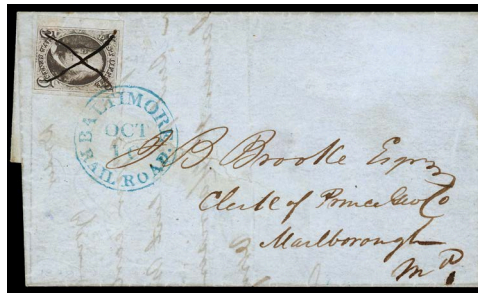 BALTIMORE
OCT
11
RAIL ROAD.
J B Brooke Esqr
Clerk of Prince Geo Co
Marlborough
Md.